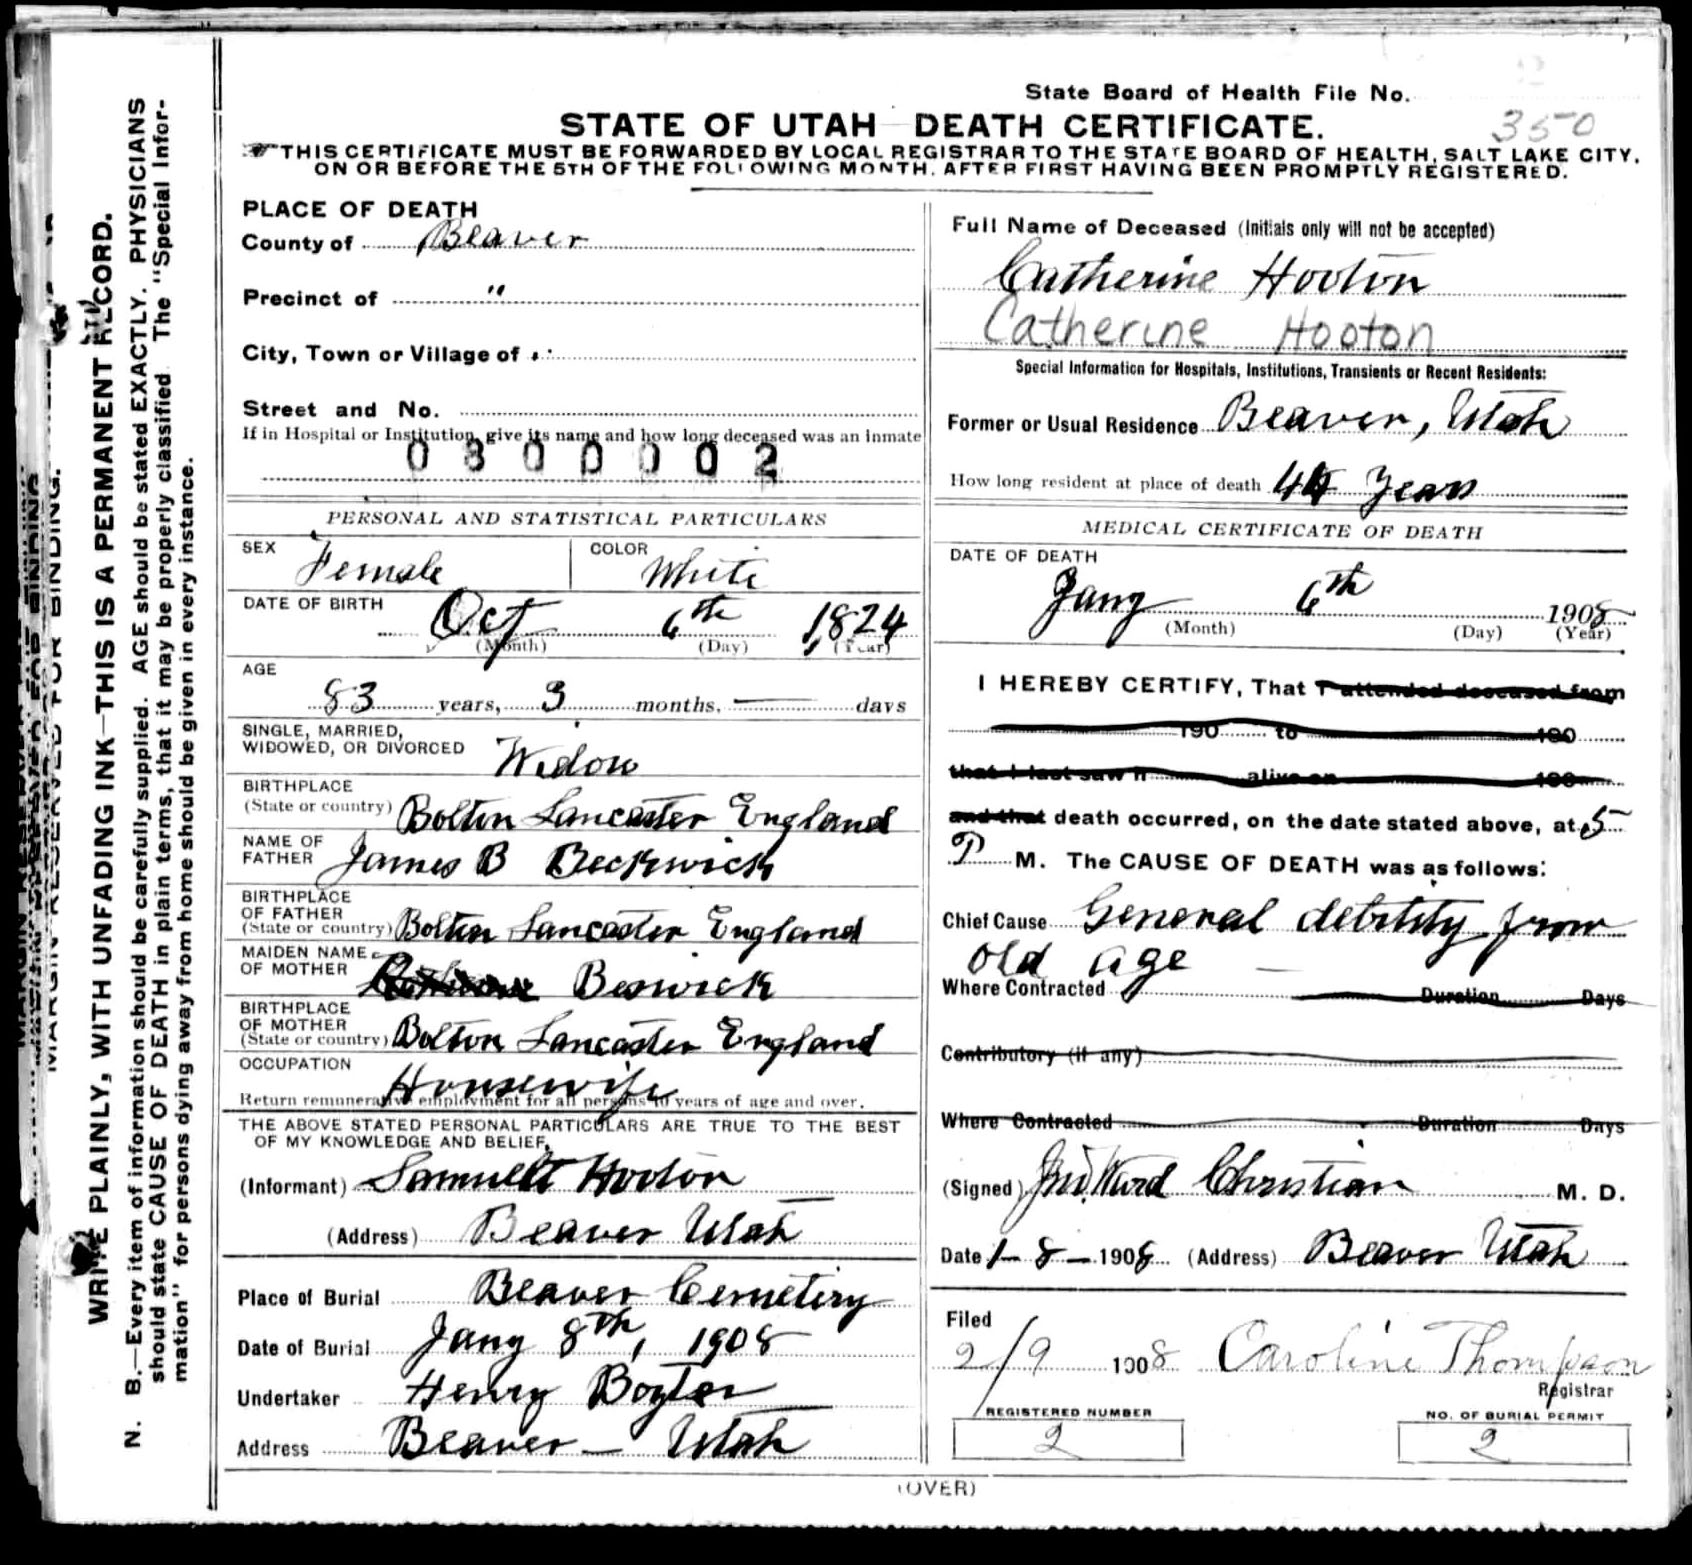 State Board of Health File No.
350
STATE OF UTAH DEATH CERTIFICATE.
THIS CERTIFICATE MUST BE FORWARDED BY LOCAL REGISTRAR TO THE STATE BOARD OF HEALTH, SALT LAKE CITY,
ON OR BEFORE THE 5TH OF THE FOLLOWING MONTH, AFTER FIRST HAVING BEEN PROMPTLY REGISTERED.
MARGIN RESERVED FOR BINDING.
WRITE PLAINLY, WITH UNFADING INK—THIS IS A PERMANENT RECORD.
N. B.—Every item of information should be carefully supplied. AGE should be stated EXACTLY. PHYSICIANS
should state CAUSE OF DEATH in plain terms, that it may be properly classified. The "Special Infor-
mation" for persons dying away from home should be given in every instance.
PLACE OF DEATH
County of Beaver
Precinct of "
City, Town or Village of "
Street and No.
If in Hospital or Institution, give its name and how long deceased was an inmate
0300002
PERSONAL AND STATISTICAL PARTICULARS
SEX Female COLOR White
DATE OF BIRTH
Oct 6th 1824
(Month) (Day) (Year)
AGE
83 years, 3 months, — days
SINGLE, MARRIED,
WIDOWED, OR DIVORCED Widow
BIRTHPLACE
(State or country) Bolton Lancaster England
NAME OF
FATHER James B Beckwick
BIRTHPLACE
OF FATHER
(State or country) Bolton Lancaster England
MAIDEN NAME
OF MOTHER Beswick
BIRTHPLACE
OF MOTHER
(State or country) Bolton Lancaster England
OCCUPATION
Housewife
Return remunerative employment for all persons 10 years of age and over.
THE ABOVE STATED PERSONAL PARTICULARS ARE TRUE TO THE BEST
OF MY KNOWLEDGE AND BELIEF,
(Informant) Samuel Hooton
(Address) Beaver Utah
Place of Burial Beaver Cemetiry
Date of Burial Jany 8th, 1908
Undertaker Henry Boyter
Address Beaver — Utah
Full Name of Deceased (Initials only will not be accepted)
Catherine Hooton
Catherine Hooton
Special Information for Hospitals, Institutions, Transients or Recent Residents:
Former or Usual Residence Beaver, Utah
How long resident at place of death 44 Years
MEDICAL CERTIFICATE OF DEATH
DATE OF DEATH
Jany 6th 1908
(Month) (Day) (Year)
I HEREBY CERTIFY, That I attended deceased from
190 to 190
that I last saw h alive on 190
and that death occurred, on the date stated above, at 5
P M. The CAUSE OF DEATH was as follows:
Chief Cause General debility from
old age —
Where Contracted Duration Days
Contributory (if any)
Where Contracted Duration Days
(Signed) Jno. Ward Christian M. D.
Date 1-8-1908 (Address) Beaver Utah
Filed
2/9 1908 Caroline Thompson
Registrar
REGISTERED NUMBER
2
NO. OF BURIAL PERMIT
2
(OVER)